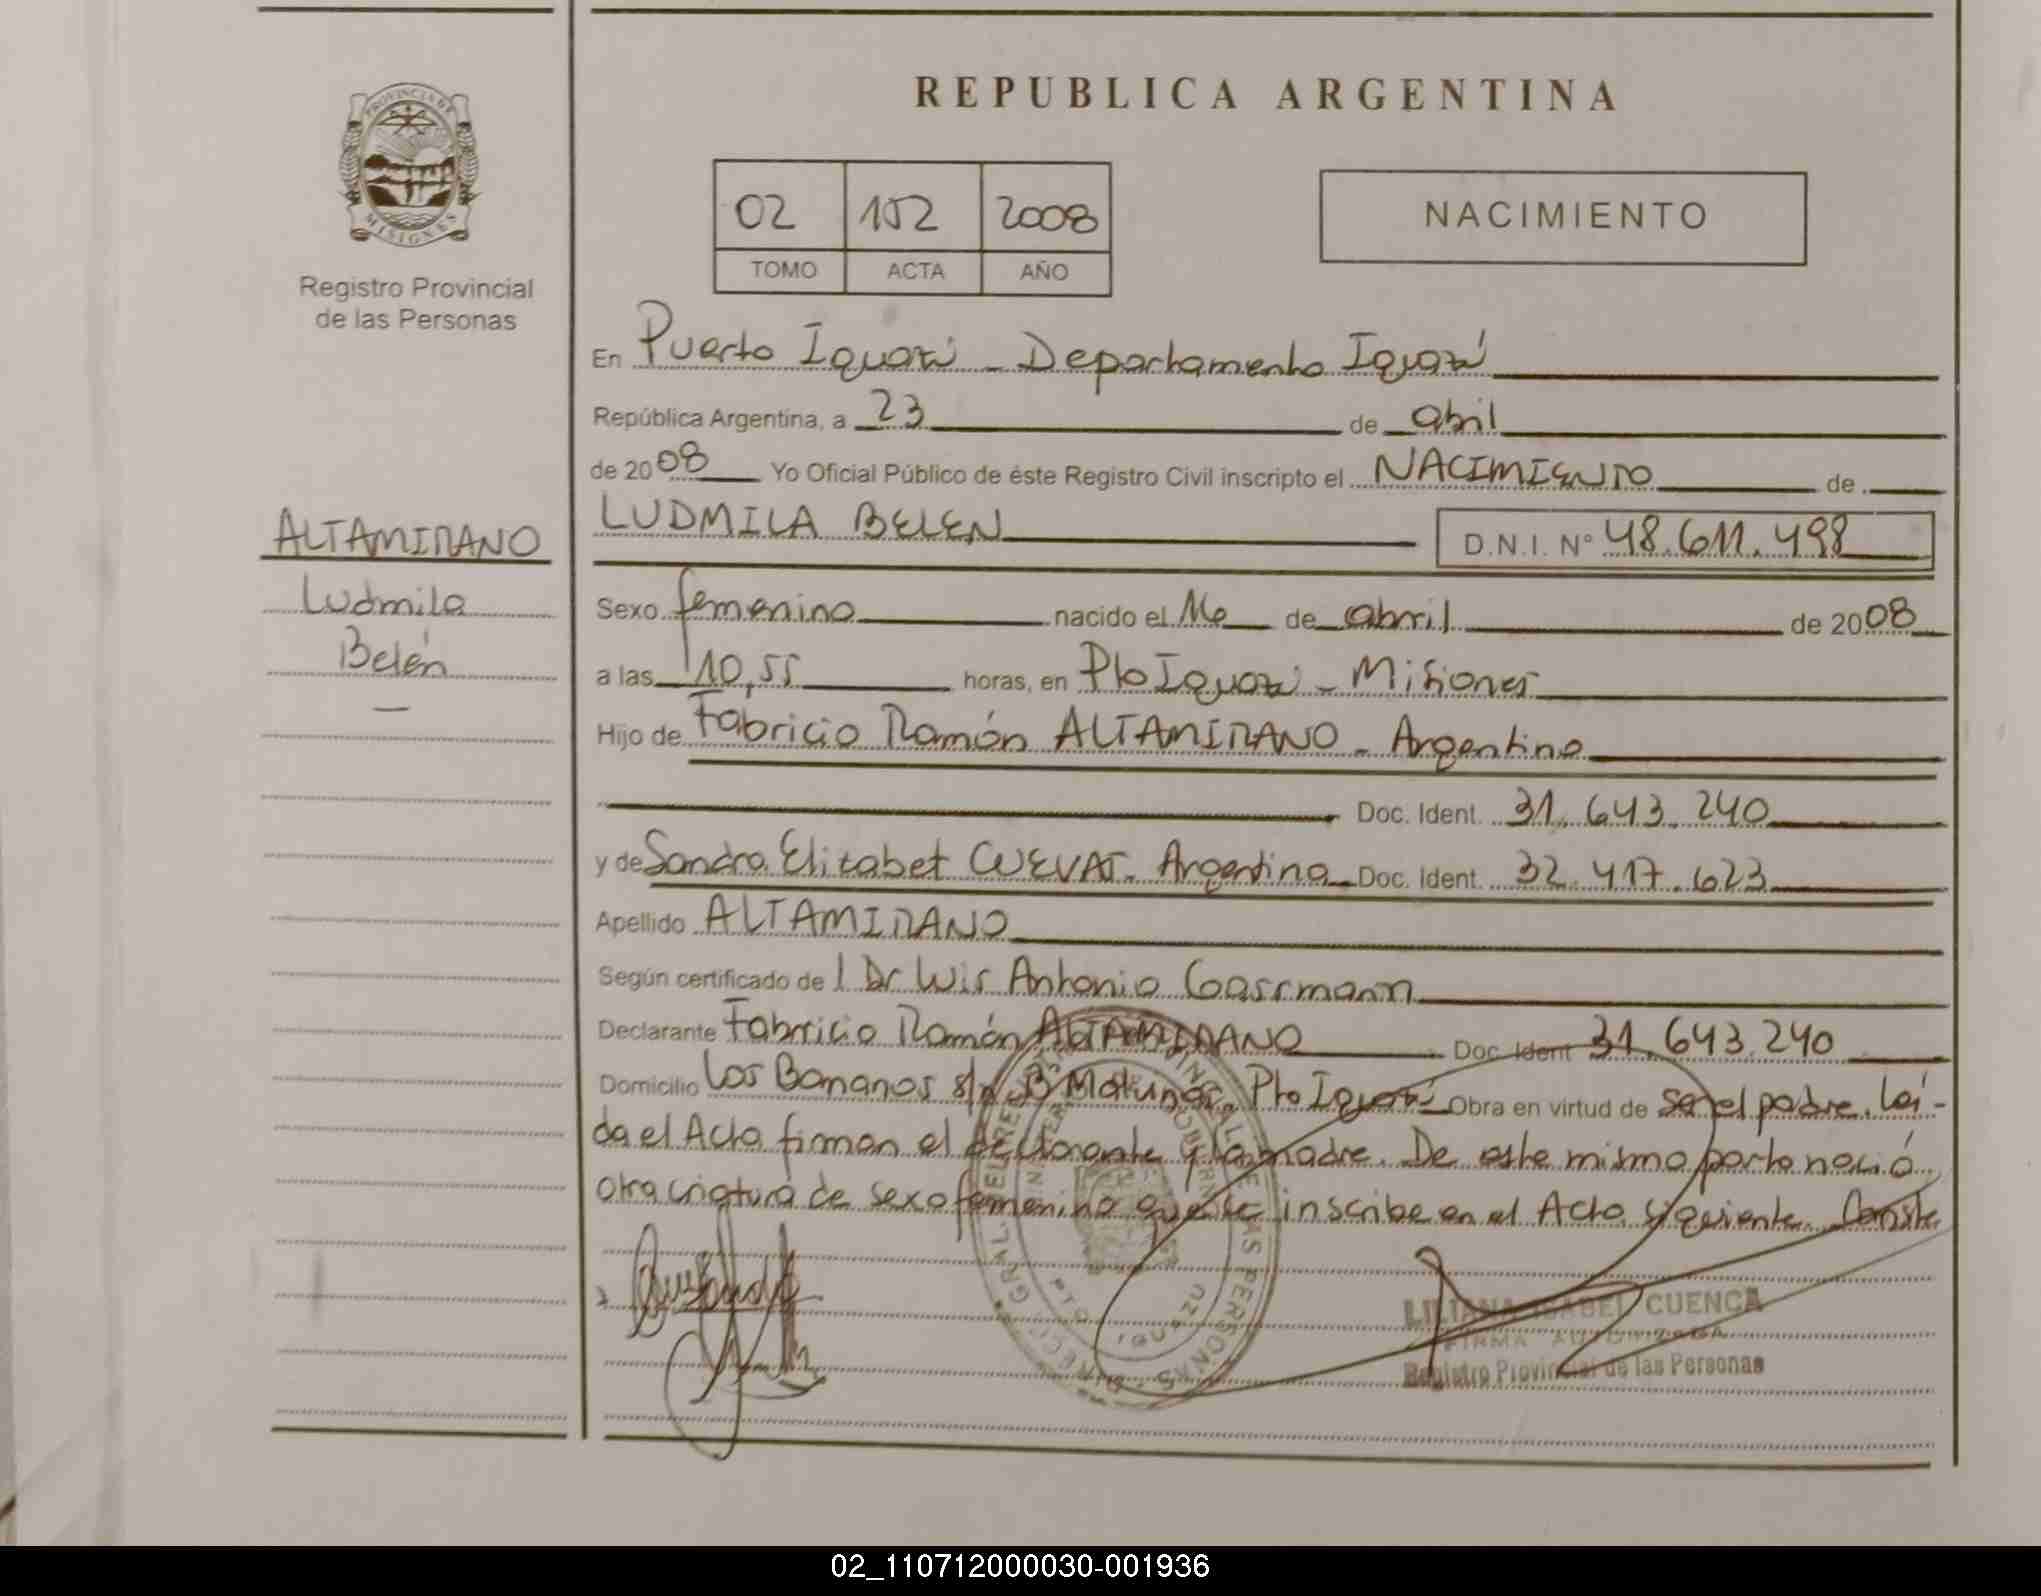 REPUBLICA ARGENTINA
PROVINCIA DE
MISIONES
Registro Provincial
de las Personas
02 152 2008
TOMO ACTA AÑO
NACIMIENTO
En Puerto Iguazú - Departamento Iguazú
República Argentina, a 23 de abril
de 2008 Yo Oficial Público de éste Registro Civil inscripto el NACIMIENTO de
LUDMILA BELEN D.N.I. Nº 48.611.498
ALTAMIRANO
Ludmila
Belén
Sexo femenino nacido el 16 de abril de 2008
a las 10,55 horas, en Pto Iguazú - Misiones
Hijo de Fabricio Ramón ALTAMIRANO - Argentino
Doc. Ident. 31.643.240
y de Sandra Elizabet CUEVAS - Argentina Doc. Ident. 32.417.623
Apellido ALTAMIRANO
Según certificado de l Dr Luis Antonio Gassmann
Declarante Fabricio Ramón ALTAMIRANO Doc. Ident 31.643.240
Domicilio Los Bananos s/n Bº Pto Iguazú Obra en virtud de ser el padre. Leí-
da el Acta firman el declarante y la madre. De este mismo parto nació
otra criatura de sexo femenino que se inscribe en el Acta siguiente. Conste
LILIANA ISABEL CUENCA
FIRMA AUTORIZADA
Registro Provincial de las Personas
PTO IGUAZU
02_110712000030-001936